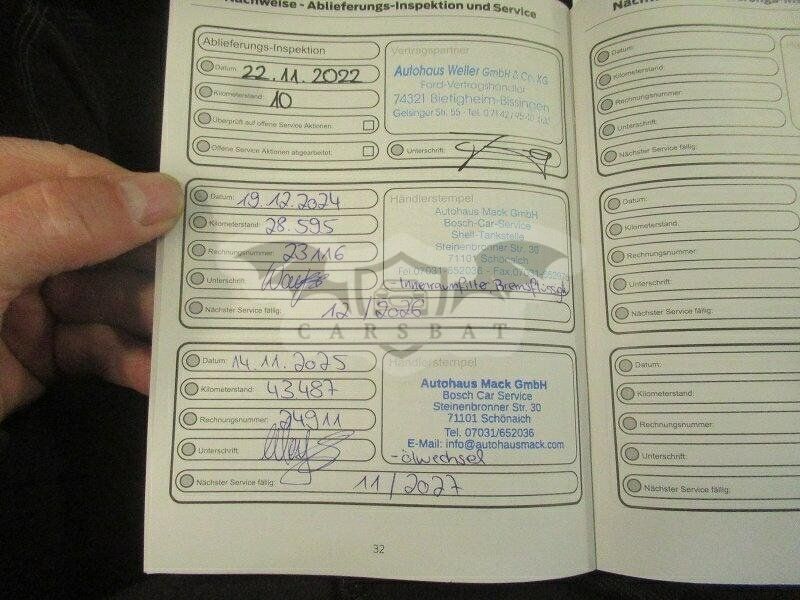 Nachweise - Ablieferungs-Inspektion und Service
Ablieferungs-Inspektion
Datum: 22.11.2022
Kilometerstand: 10
Überprüft auf offene Service Aktionen:
Offene Service Aktionen abgearbeitet:
Vertragspartner
Autohaus Weller GmbH & Co. KG
Ford-Vertragshändler
74321 Bietigheim-Bissingen
Geisinger Str. 55 - Tel.
Unterschrift:
Datum: 19.12.2024
Kilometerstand: 28.595
Rechnungsnummer: 23116
Unterschrift:
Nächster Service fällig: 12/2026
Händlerstempel
Autohaus Mack GmbH
Bosch-Car-Service
Shell-Tankstelle
Steinenbronner Str. 30
71101 Schönaich
Tel. 07031/652036 - Fax
-Innenraumfilter Bremsflüssigk
CARSBAT
Datum: 14.11.2025
Kilometerstand: 43487
Rechnungsnummer: 24911
Unterschrift:
Nächster Service fällig: 11/2027
Händlerstempel
Autohaus Mack GmbH
Bosch Car Service
Steinenbronner Str. 30
71101 Schönaich
Tel. 07031/652036
E-Mail: info@autohausmack.com
-Ölwechsel
32
Datum:
Kilometerstand:
Rechnungsnummer:
Unterschrift:
Nächster Service fällig:
Datum:
Kilometerstand:
Rechnungsnummer:
Unterschrift:
Nächster Service fällig:
Datum:
Kilometerstand:
Rechnungsnummer:
Unterschrift:
Nächster Service fällig: